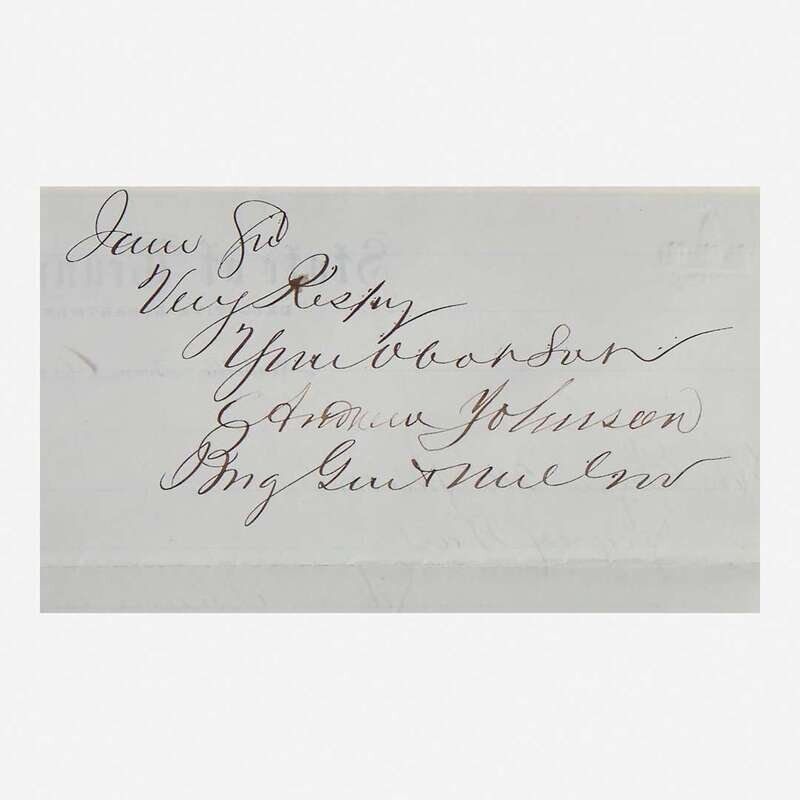 I am Sir
Very Respy
Your obdt Svt
Andrew Johnson
Brig Genl & Mil Gov